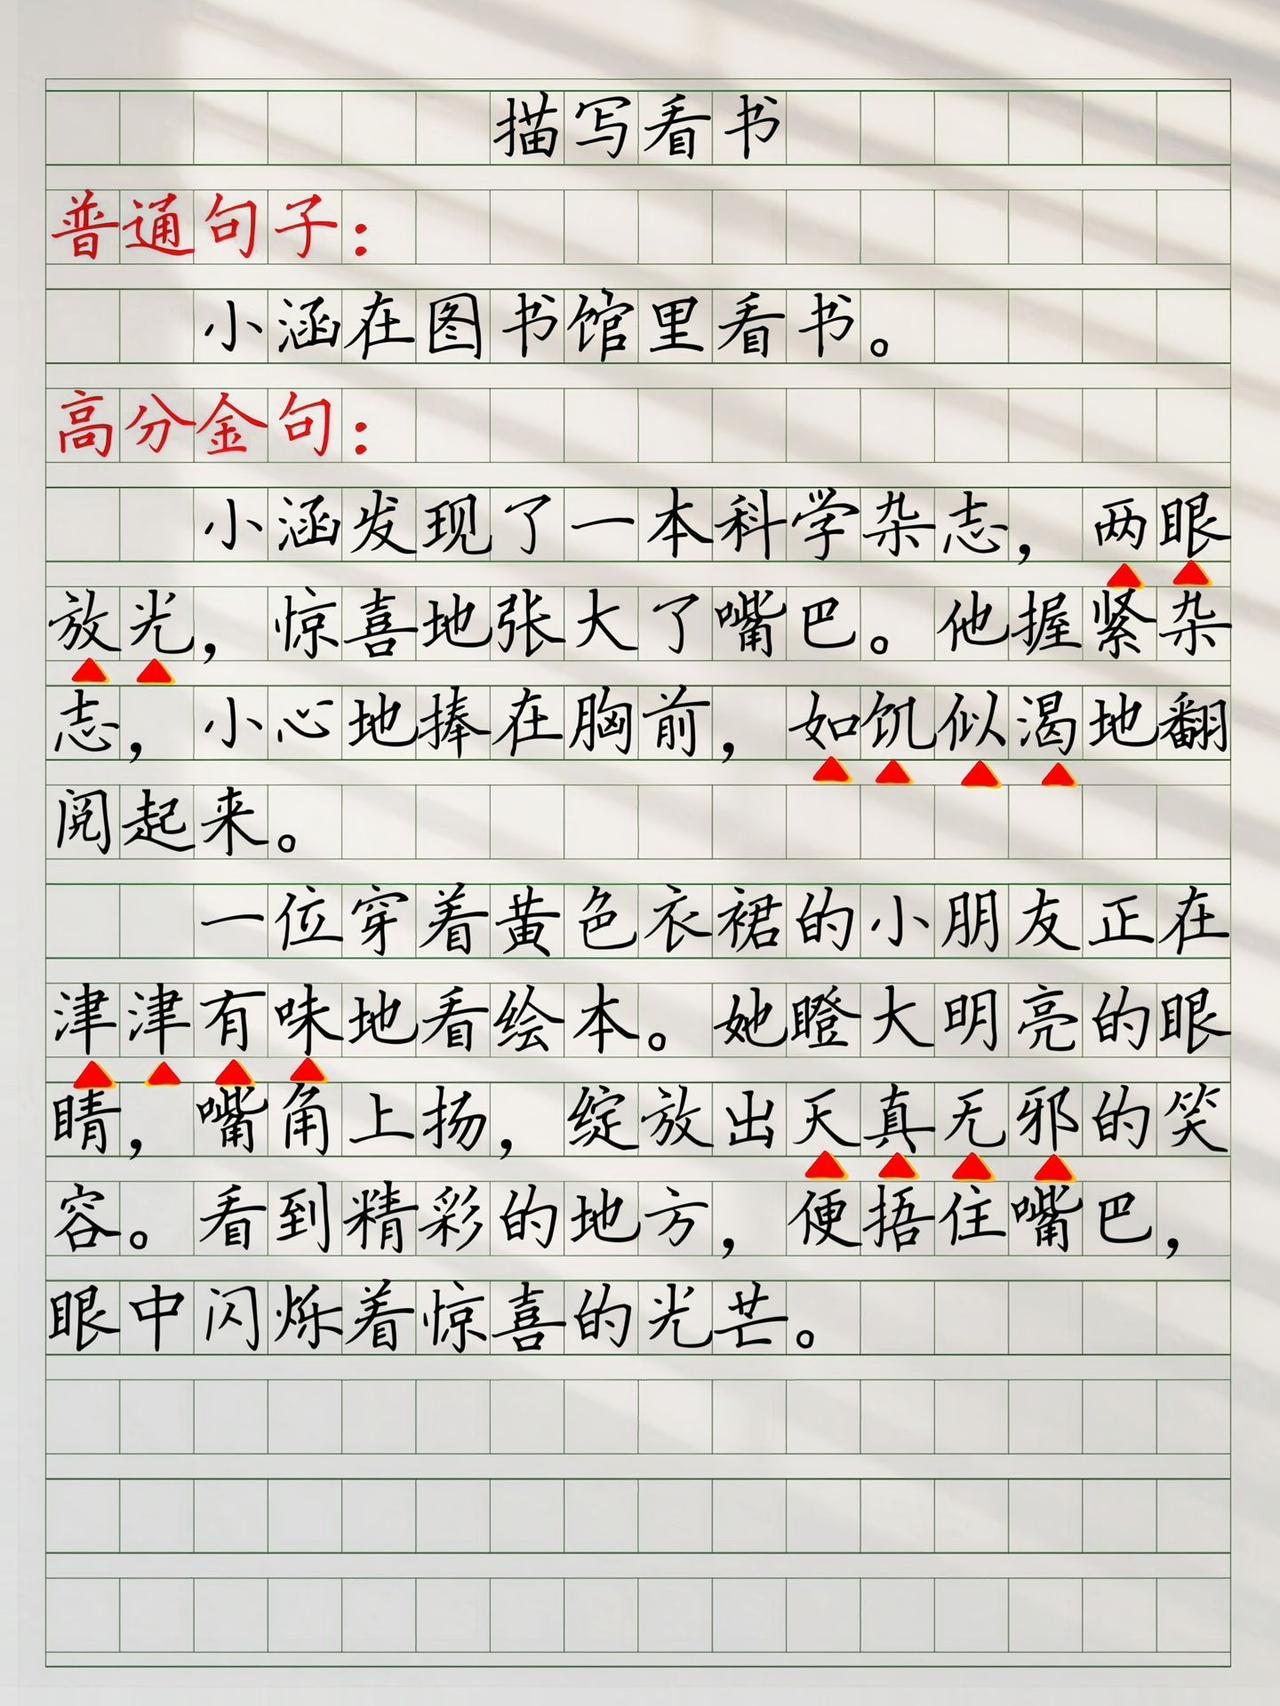 描写看书
普通句子：
小涵在图书馆里看书。
高分金句：
小涵发现了一本科学杂志，两眼
放光，惊喜地张大了嘴巴。他握紧杂
志，小心地捧在胸前，如饥似渴地翻
阅起来。
一位穿着黄色衣裙的小朋友正在
津津有味地看绘本。她瞪大明亮的眼
睛，嘴角上扬，绽放出天真无邪的笑
容。看到精彩的地方，便捂住嘴巴，
眼中闪烁着惊喜的光芒。